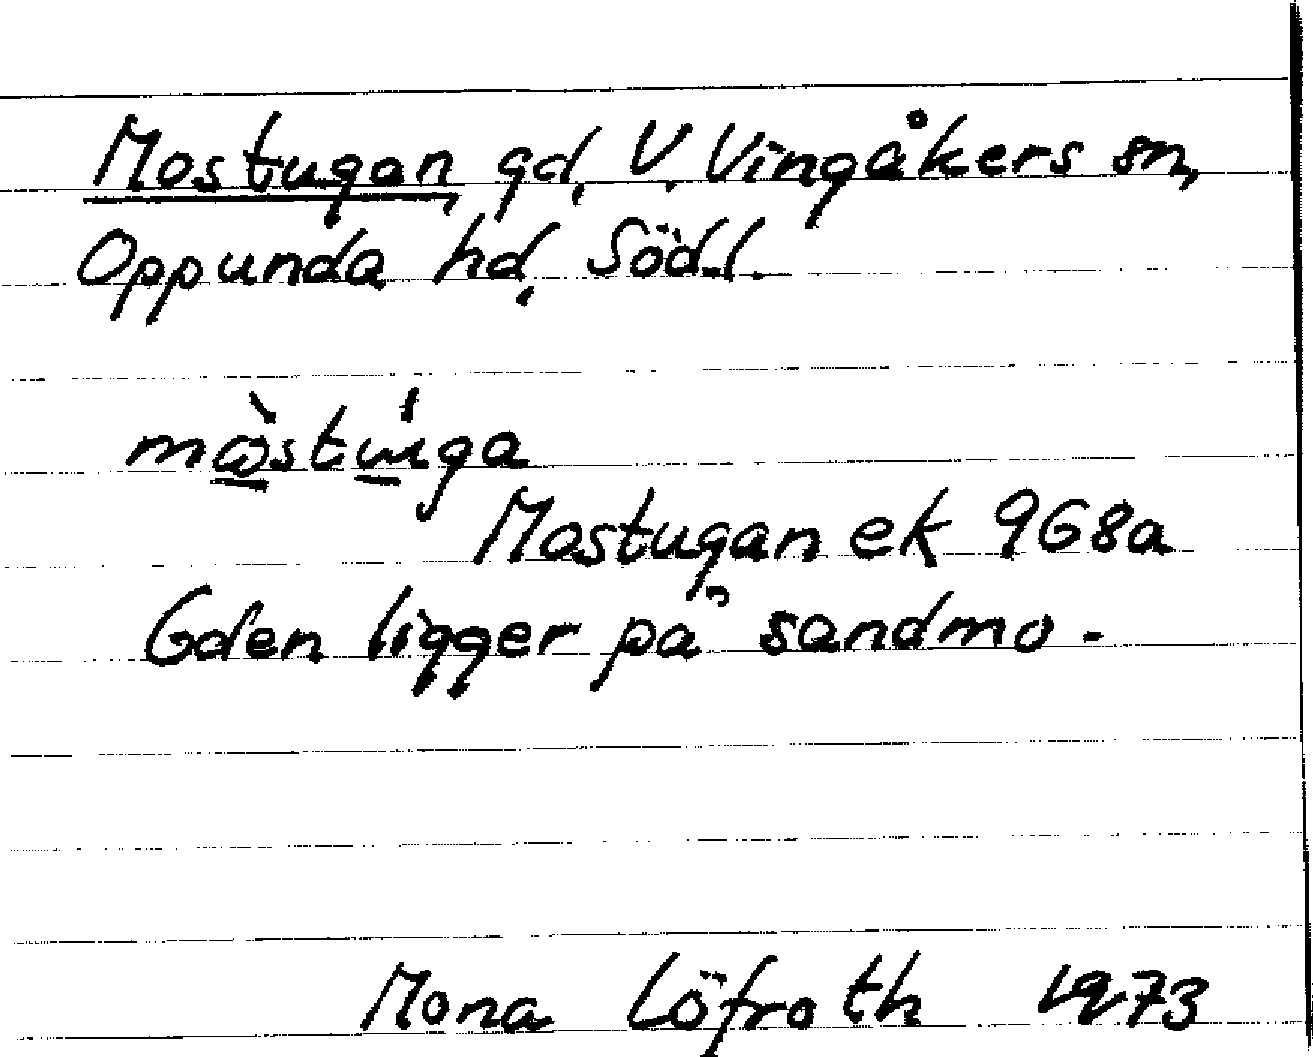 Mostugan, gd, V. Vingåkers sn,
Oppunda hd, Södl.
mὼ̲stɯ̲́ga
Mostugan ek 9G8a
Gden ligger på sandmo.
Mona Löfroth 1973